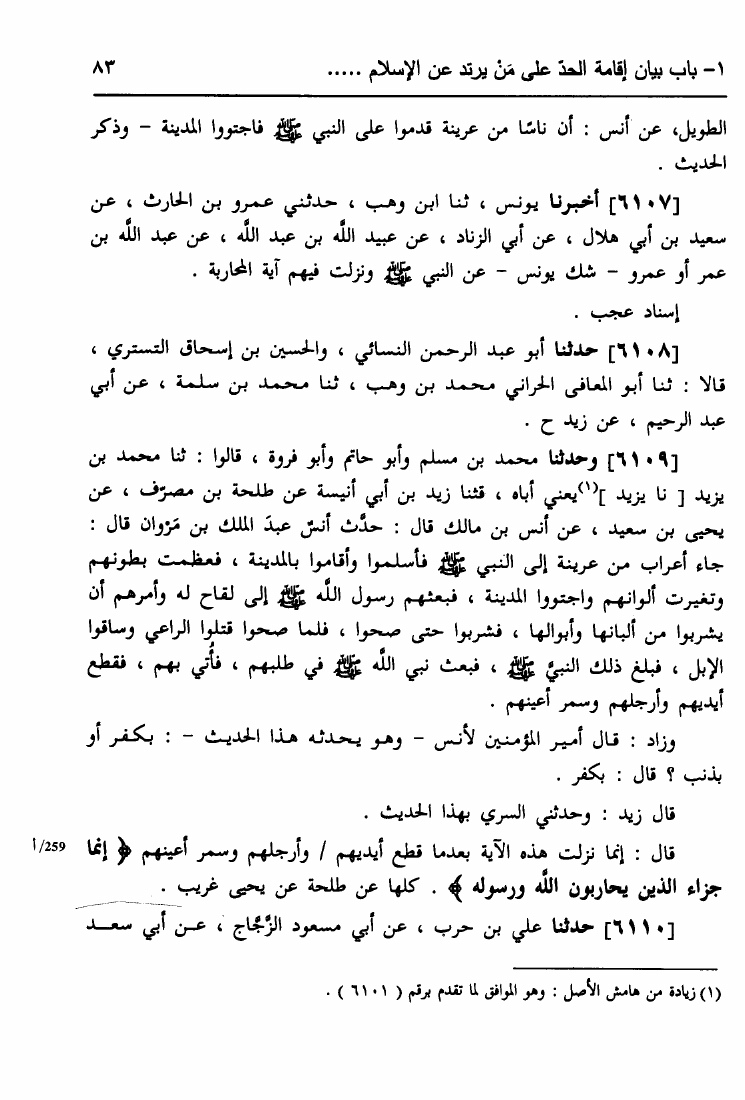 ١- باب بيان إقامة الحدّ على مَنْ يرتد عن الإسلام ..... ٨٣
الطويل، عن أنس : أن ناسًا من عرينة قدموا على النبي ﷺ فاجتووا المدينة - وذكر
الحديث .
[٦١٠٧] أخبرنا يونس ، ثنا ابن وهب ، حدثني عمرو بن الحارث ، عن
سعيد بن أبي هلال ، عن أبي الزناد ، عن عبيد اللَّه بن عبد اللَّه ، عن عبد اللَّه بن
عمر أو عمرو - شك يونس - عن النبي ﷺ ونزلت فيهم آية المحاربة .
إسناد عجب .
[٦١٠٨] حدثنا أبو عبد الرحمن النسائي ، والحسين بن إسحاق التستري ،
قالا : ثنا أبو المعافى الحراني محمد بن وهب ، ثنا محمد بن سلمة ، عن أبي
عبد الرحيم ، عن زيد ح .
[٦١٠٩] وحدثنا محمد بن مسلم وأبو حاتم وأبو فروة ، قالوا : ثنا محمد بن
يزيد [ نا يزيد ](١)يعني أباه ، قثنا زيد بن أبي أنيسة عن طلحة بن مصرّف ، عن
يحيى بن سعيد ، عن أنس بن مالك قال : حدَّث أنسٌ عبدَ الملك بن مَرْوان قال :
جاء أعراب من عرينة إلى النبي ﷺ فأسلموا وأقاموا بالمدينة ، فعظمت بطونهم
وتغيرت ألوانهم واجتووا المدينة ، فبعثهم رسول اللَّه ﷺ إلى لقاح له وأمرهم أن
يشربوا من ألبانها وأبوالها ، فشربوا حتى صحوا ، فلما صحوا قتلوا الراعي وساقوا
الإبل ، فبلغ ذلك النبيَّ ﷺ ، فبعث نبي اللَّه ﷺ في طلبهم ، فأُتي بهم ، فقطع
أيديهم وأرجلهم وسمر أعينهم .
وزاد : قال أمير المؤمنين لأنس - وهو يحدثه هذا الحديث - : بكفر أو
بذنب ؟ قال : بكفر .
قال زيد : وحدثني السري بهذا الحديث .
قال : إنما نزلت هذه الآية بعدما قطع أيديهم / وأرجلهم وسمر أعينهم ﴿ إنما 259/أ
جزاء الذين يحاربون اللَّه ورسوله ﴾ . كلها عن طلحة عن يحيى غريب .
[٦١١٠] حدثنا علي بن حرب ، عن أبي مسعود الزَّجَّاج ، عن أبي سعد
(١) زيادة من هامش الأصل : وهو الموافق لما تقدم برقم ( ٦١٠١ ) .